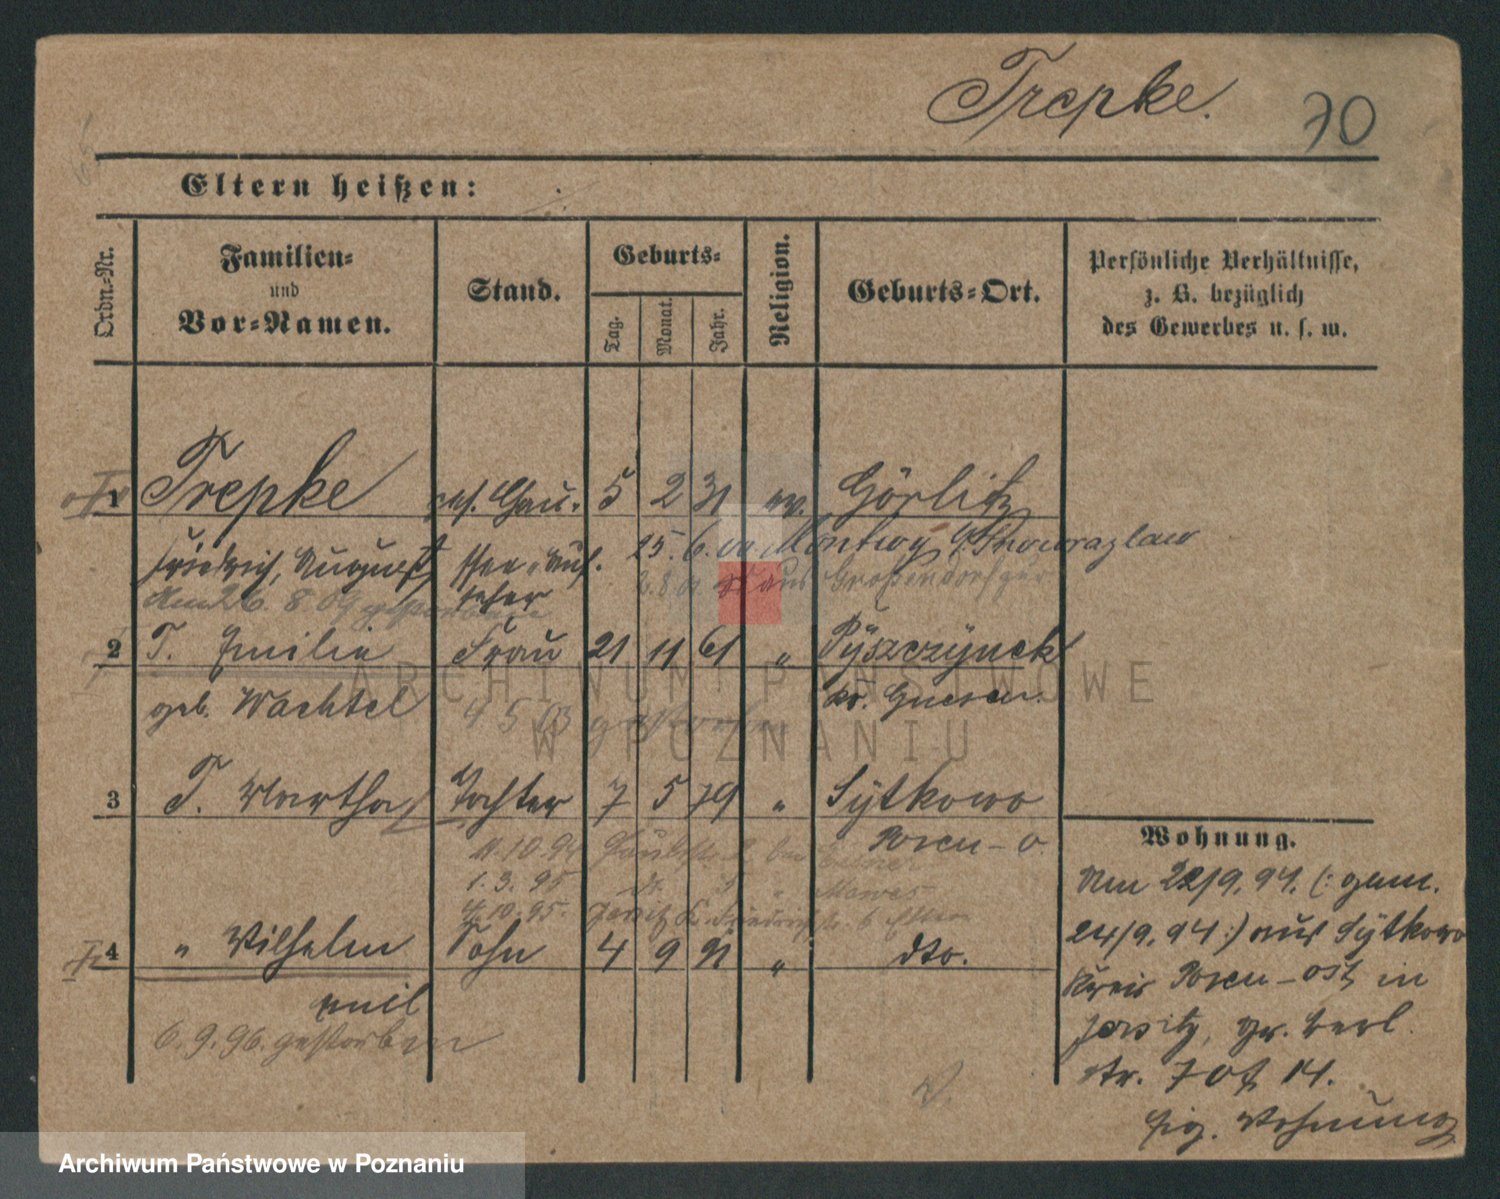 Trepke.
70
Eltern heißen:
Ordn.-Nr.
Familien-
und
Vor-Namen.
Stand.
Geburts-
Tag.
Monat.
Jahr.
Religion.
Geburts-Ort.
Persönliche Verhältnisse,
z. B. bezüglich
des Gewerbes u. s. w.
1 Trepke 5 2 31 ev. Görlitz
Friedrich, August 25. 6. Montwy
Am 26. 8. 09 gestorben
2 T. Emilie Frau 21 11 61 " Pyszczynek
geb. Wachtel Kr. Gnesen.
4 5 03 gestorben
3 T. Martha Tochter 7 5 79 " Sytkowo
Posen - O.
11.10.94
1. 3. 95
4.10.95. Jersitz
4 " Wilhelm Sohn 4 9 91 " dto.
Emil
6. 9. 96. gestorben
Wohnung.
Am 22/9. 94. (: gem.
24/9. 94 :) aus Sytkowo
Kreis Posen - Ost in
Jersitz, Gr. Berl.
Str. 70
Wohnung
ARCHIWUM PAŃSTWOWE
W POZNANIU
Archiwum Państwowe w Poznaniu